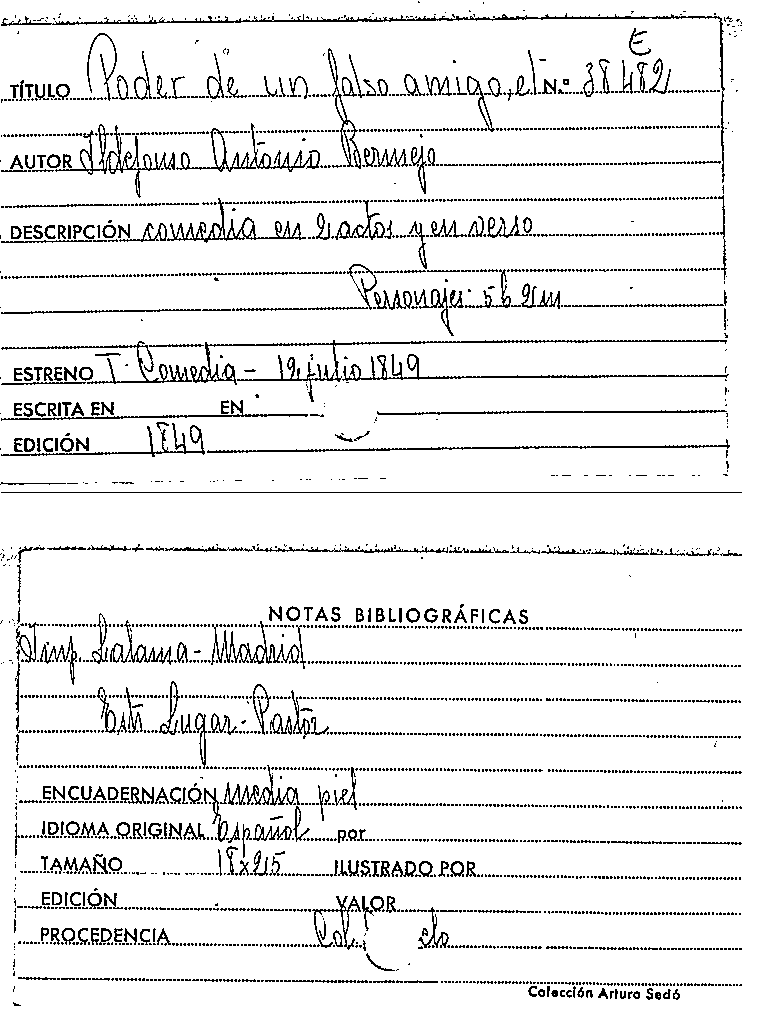 E
TÍTULO Poder de un falso amigo, el N.º 38482
AUTOR Ildefonso Antonio Bermejo
DESCRIPCIÓN comedia en 2 actos y en verso
Personajes: 5h 2m
ESTRENO T. Comedia - 12 julio 1849
ESCRITA EN EN
EDICIÓN 1849
NOTAS BIBLIOGRÁFICAS
Imp. Lalama - Madrid
Lugar - Pastor
ENCUADERNACIÓN media piel
IDIOMA ORIGINAL Español por
TAMAÑO 18x215 ILUSTRADO POR
EDICIÓN VALOR
PROCEDENCIA Col.
Colección Arturo Sedó